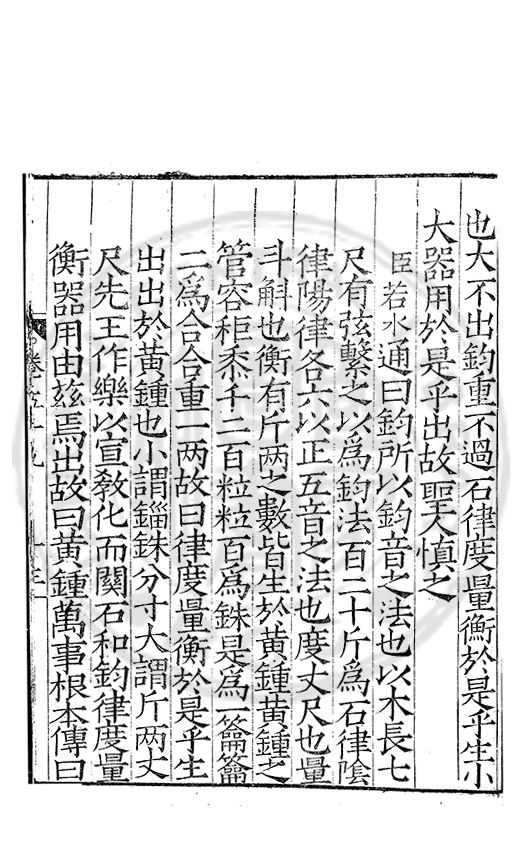 也大不出鈞重不過石律度量衡於是乎生小
大器用於是乎出故聖人慎之
臣若水通曰鈞所以鈞音之法也以木長七
尺有弦繫之以爲鈞法百二十斤爲石律陰
律陽律各六以正五音之法也度丈尺也量
斗斛也衡有斤两之數皆生於黃鍾黃鍾之
管容秬黍千二百粒粒百爲銖是爲一籥籥
二爲合合重一两故曰律度量衡於是乎生
出出於黃鍾也小謂錙銖分寸大謂斤两丈
尺先王作樂以宣教化而關石和鈞律度量
衡器用由兹焉出故曰黃鍾萬事根本傳曰